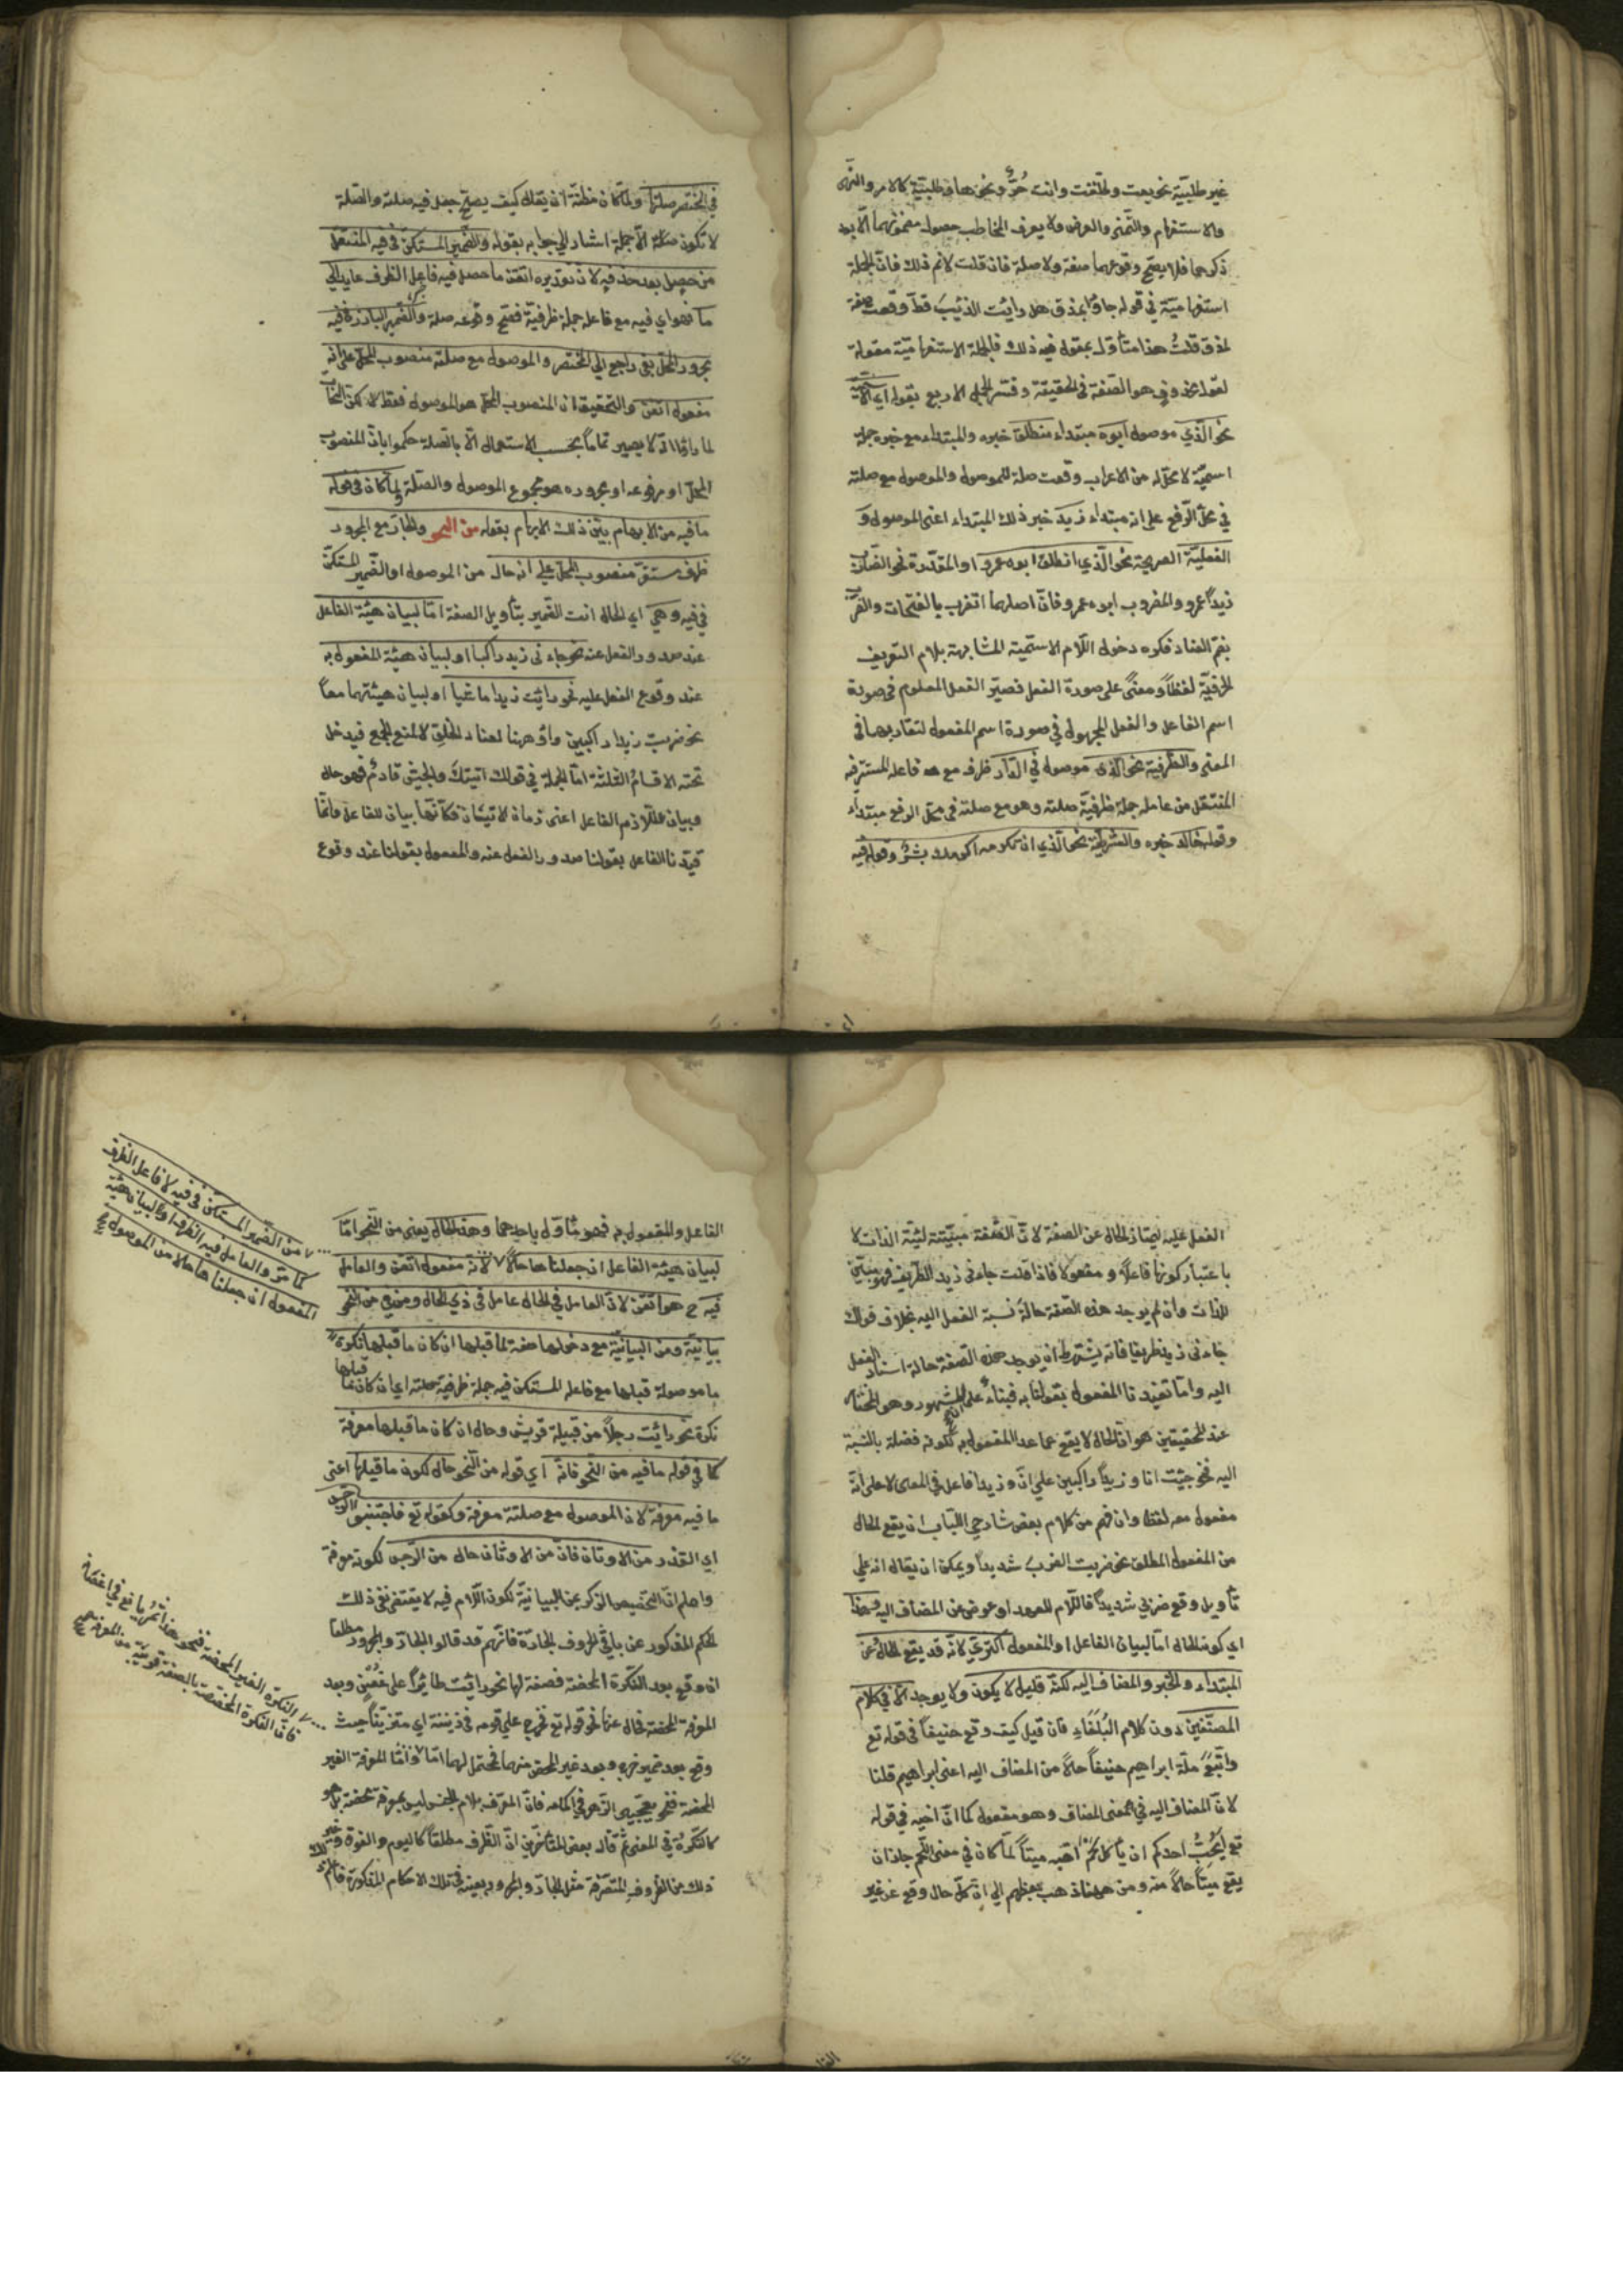 غير طلبيّة نحو بعت وطلّقت وانت حُرّ ونحوها وطلبيّة كالامر والنهى
والاستفهام والتمنى والعرض ولا يعرف المخاطب حصول مضمونهما الّا بعد
ذكرهما فلا يصح وقوعهما صفة ولا صلة فان قلت لانم ذلك فانّ الجملة
استفهاميّة في قوله جاؤا بمذق هل رايت الذئب قط وقعت صفة
لمذق قلتُ هذا متأول بمقول فيه ذلك فالجملة الاستفهاميّة مقولة
لقول محذوف هو الصفة في الحقيقة وفسّر الجمل الاربع بقوله اى الاسمية
نحو الّذي موصول ابوه مبتداء منطلق خبره والمبتداء مع خبره جملة
اسميّة لا محلّ له من الاعراب وقعت صلة للموصول والموصول مع صلته
في محلّ الرّفع على انه مبتداء زيد خبر ذلك المبتداء اعنى الموصول و
الفعليّة الصريحة نحو الّذي انطلق ابوه عمرو او المقدّرة نحو الضارب
زيداً عمرو والمضروب ابوه عمرو فانّ اصلهما اتضرب بالفتحات والضرب
بضم الضاد فكره دخول اللّام الاسميّة المشابهة بلام التعريف
الحرفيّة لفظاً ومعنًى على صورة الفعل فصيّر الفعل المعلوم في صورة
اسم الفاعل والفعل المجهول في صورة اسم المفعول لتقاربهما في
المعنى والظرفية نحو الّذى موصول في الدّار ظرف مع فاعله المستتر فيه
المنتقل من عامله جملة ظرفيّة صلته وهو مع صلته في محل الرفع مبتداء
وقوله خالد خبره والشرطيّة نحو الّذي ان تكرمه اكرمك بشرٌ وقوله فيه
في المختصر صلتها ولمّا كان مظنّة ان يقال كيف يصحّ جعل فيه صلة والصّلة
لا تكون صلة الّا جملة اشار الي جوابه بقوله والضّمير المستكن في فيه المنتقل
من حصل بعد حذفه لانّ تقديره اتقن ما حصل فيه فاعل الظرف عايد الي
ما فهو اي فيه مع فاعله جملة ظرفيّة فصحّ وقوعه صلة والضّمير البارز في فيه
مجرور المحلّ بفى راجع الي المختصر والموصول مع صلته منصوب المحلّ على انه
مفعول اتقن والتحقيق ان المنصوب المحلّ هو الموصول فقط لكن النحاة
لما راوا انّه لا يصير تماماً بحسب الاستعمال الّا بالصّلة حكموا بانّ المنصوب
المحلّ او مرفوعه او مجروره هو مجموع الموصول والصّلة ولمّا كان في قوله
ما فيه من الابهام بيّن ذلك الابهام بقوله من النحو والجارّ مع المجرور
ظرف مستقرّ منصوب المحلّ على انه حال من الموصول او الضّمير المستكنّ
في فيه وهي اي الحال انث الضّمير بتأويل الصفة امّا لبيان هيئة الفاعل
عند صدور الفعل عنه نحو جاءنى زيد راكبا او لبيان هيئة المفعول به
عند وقوع الفعل عليه نحو رايت زيدا ماشيا او لبيان هيئتهما معاً
نحو ضربت زيدا راكبين واؤ ههنا لعناد الخلوّ لا لمنع الجمع فيدخل
تحته الاقسامُ الثلثة امّا الجملة في قولك اتيتك والجيش قادمٌ فهو حال
وبيان للّازم الفاعل اعنى زمان الاتيان فكانّها بيان للفاعل وانّما
قيّدنا الفاعل بقولنا صدور الفعل عنه والمفعول بقولنا عند وقوع
الفعل عليه ليمتاز الحال عن الصفة لانّ الصّفة مبيّنة لهيئة الذات لا
باعتبار كونها فاعلاً ومفعولا فاذا قلت جاءنى زيد الظريف فهو مبيّن
للذات وان لم يوجد هذه الصّفة حالة نسبة الفعل اليه بخلاف قولك
جاءنى زيد ظريفا فانه يشترط ان يوجد هذه الصّفة حالة اسناد الفعل
اليه وامّا تقييدنا المفعول بقولنا به فبناءً على المشهور وهو المختار
عند المحققين هو انّ الحال لا يقع عما عدا المفعول به لكونه فضلة بالنسبة
اليه نحو جئت انا وزيداً راكبين على انّ زيدا فاعل في المعنى لا على انّه
مفعول معه لفظا وان فهم من كلام بعض شارحي اللّباب ان يقع الحال
من المفعول المطلق نحو ضربت الضرب شديداً ويمكن ان يقال انه على
تأويل وقع ضربي شديداً فاللّام للعهد او عوض عن المضاف اليه وهذا
اي كون الحال امّا لبيان الفاعل او المفعول اكثري لانّه قد يقع الحال عن
المبتداء والخبر والمضاف اليه لكنّه قليل لا يكون ولا يوجد الّا في كلام
المصنّفين دون كلام البُلَغاءِ فان قيل كيف وقع حنيفاً في قوله تع
واتّبَعَ ملّة ابراهيم حنيفاً حالاً من المضاف اليه اعنى ابراهيم قلنا
لانّ المضاف اليه في معنى المضاف وهو مفعول كما انّ اخيه في قوله
تع ايُحِبُّ احدكم ان يأكل لحم اخيه ميتاً لمّا كان في معنى اللّحم جاز ان
يقع ميتاً حالاً منه ومن ههنا ذهب بعضهم الي انّ كلّ حال وقع عن غير
الفاعل والمفعول به فهو مأوّل باحدهما وهذه الحال يعنى من النّحو امّا
لبيان هيئة الفاعل ان جعلناها حالاً لانّه مفعول اتقن والعامل
فيه ح هو اتقن لانّ العامل في الحال عامل في ذي الحال ومن في من النحو
بيانيّة ومن البيانيّة مع دخولها صفة لما قبلها ان كان ما قبلها نكرة
ما موصولة قبلها مع فاعله المستكن فيه جملة ظرفية صلته اي ان كان ما قبلها
نكرة نحو رايت رجلاً من قبيلة قريش وحال ان كان ما قبلها معرفة
كما في قوله ما فيه من النّحو فانّه اي قوله من النّحو حال لكون ما قبلها اعنى
ما فيه معرفة لانّ الموصول مع صلته معرفة وكقوله تع فاجتنبوا الرّجس
اي القذر من الاوثان فانّ من الاوثان حال من الرّجس لكونه معرفة
واعلم انّ التخصيص الذكر بمن البيانيّة لكون الّلام فيه لا يقتضى نفى ذلك
الحكم المذكور عن باقي الحروف الجارّة فانّهم قد قالوا الجارّ والمجرور مطلقا
ان وقع بعد النّكرة المحضة فصفة لها نحو رايت طائراً على غُصْنٍ وبعد
المعرفة المحضة فحال عنها نحو قوله تع فخرج على قومه في زينته اي متزيّناً حيث
وقع بعد ضمير خرج وبعد غير المحض منهما فمحتمل لهما امّا وامّا المعرفة الغير
المحضة فنحو يعجبنى الزّهر في اكمامه فانّ المعرّف بلام الجنس ليس بمعرفة محضة بل هو
كالنّكرة في المعنى ثمّ قال بعض المتأخّرين انّ الظّرف مطلقاً كاليوم والغدوة وغير ذلك
ذلك من الظّروف المتصرّفة مثل الجارّ والمجرور بعينه في تلك الاحكام المذكورة فاعلم
من الضّمير المستكن في فيه لا فاعل الظرف
كما مرّ والعامل فيه الظرف او لبيان هيئة
المفعول ان جعلناها حالا من الموصول صح
النكرة الغير المحضة فنحو هذا ثمر يانع في اغصانه
فانّ النكرة المخصّصة بالصفة قريبة من المعرفة صح